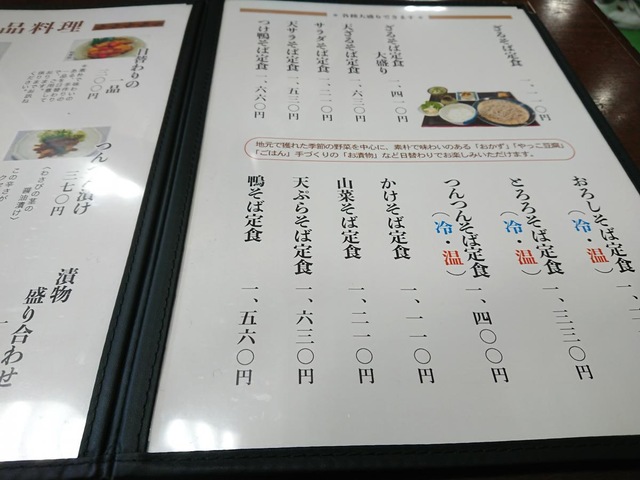 各種大盛りできます
ざるそば定食
一、一一〇円
ざるそば定食
大盛り
一、四一〇円
天ざるそば定食
一、六三〇円
サラダそば定食
一、二一〇円
天サラそば定食
一、五三〇円
つけ鴨そば定食
一、六六〇円
地元で獲れた季節の野菜を中心に、素朴で味わいのある「おかず」「やっこ豆腐」
「ごはん」手づくりの「お漬物」など日替わりでお楽しみいただけます。
おろしそば定食
(冷・温)
一、一
とろろそば定食
(冷・温)
一、三三〇円
つんつんそば定食
(冷・温)
一、四〇〇円
かけそば定食
一、一一〇円
山菜そば定食
一、二一〇円
天ぷらそば定食
一、六三〇円
鴨そば定食
一、五六〇円
品料理
日替わりの
一品
三〇〇円
つんつん漬け
三七〇円
(わさびの茎の
醤油漬け)
漬物
盛り合わせ